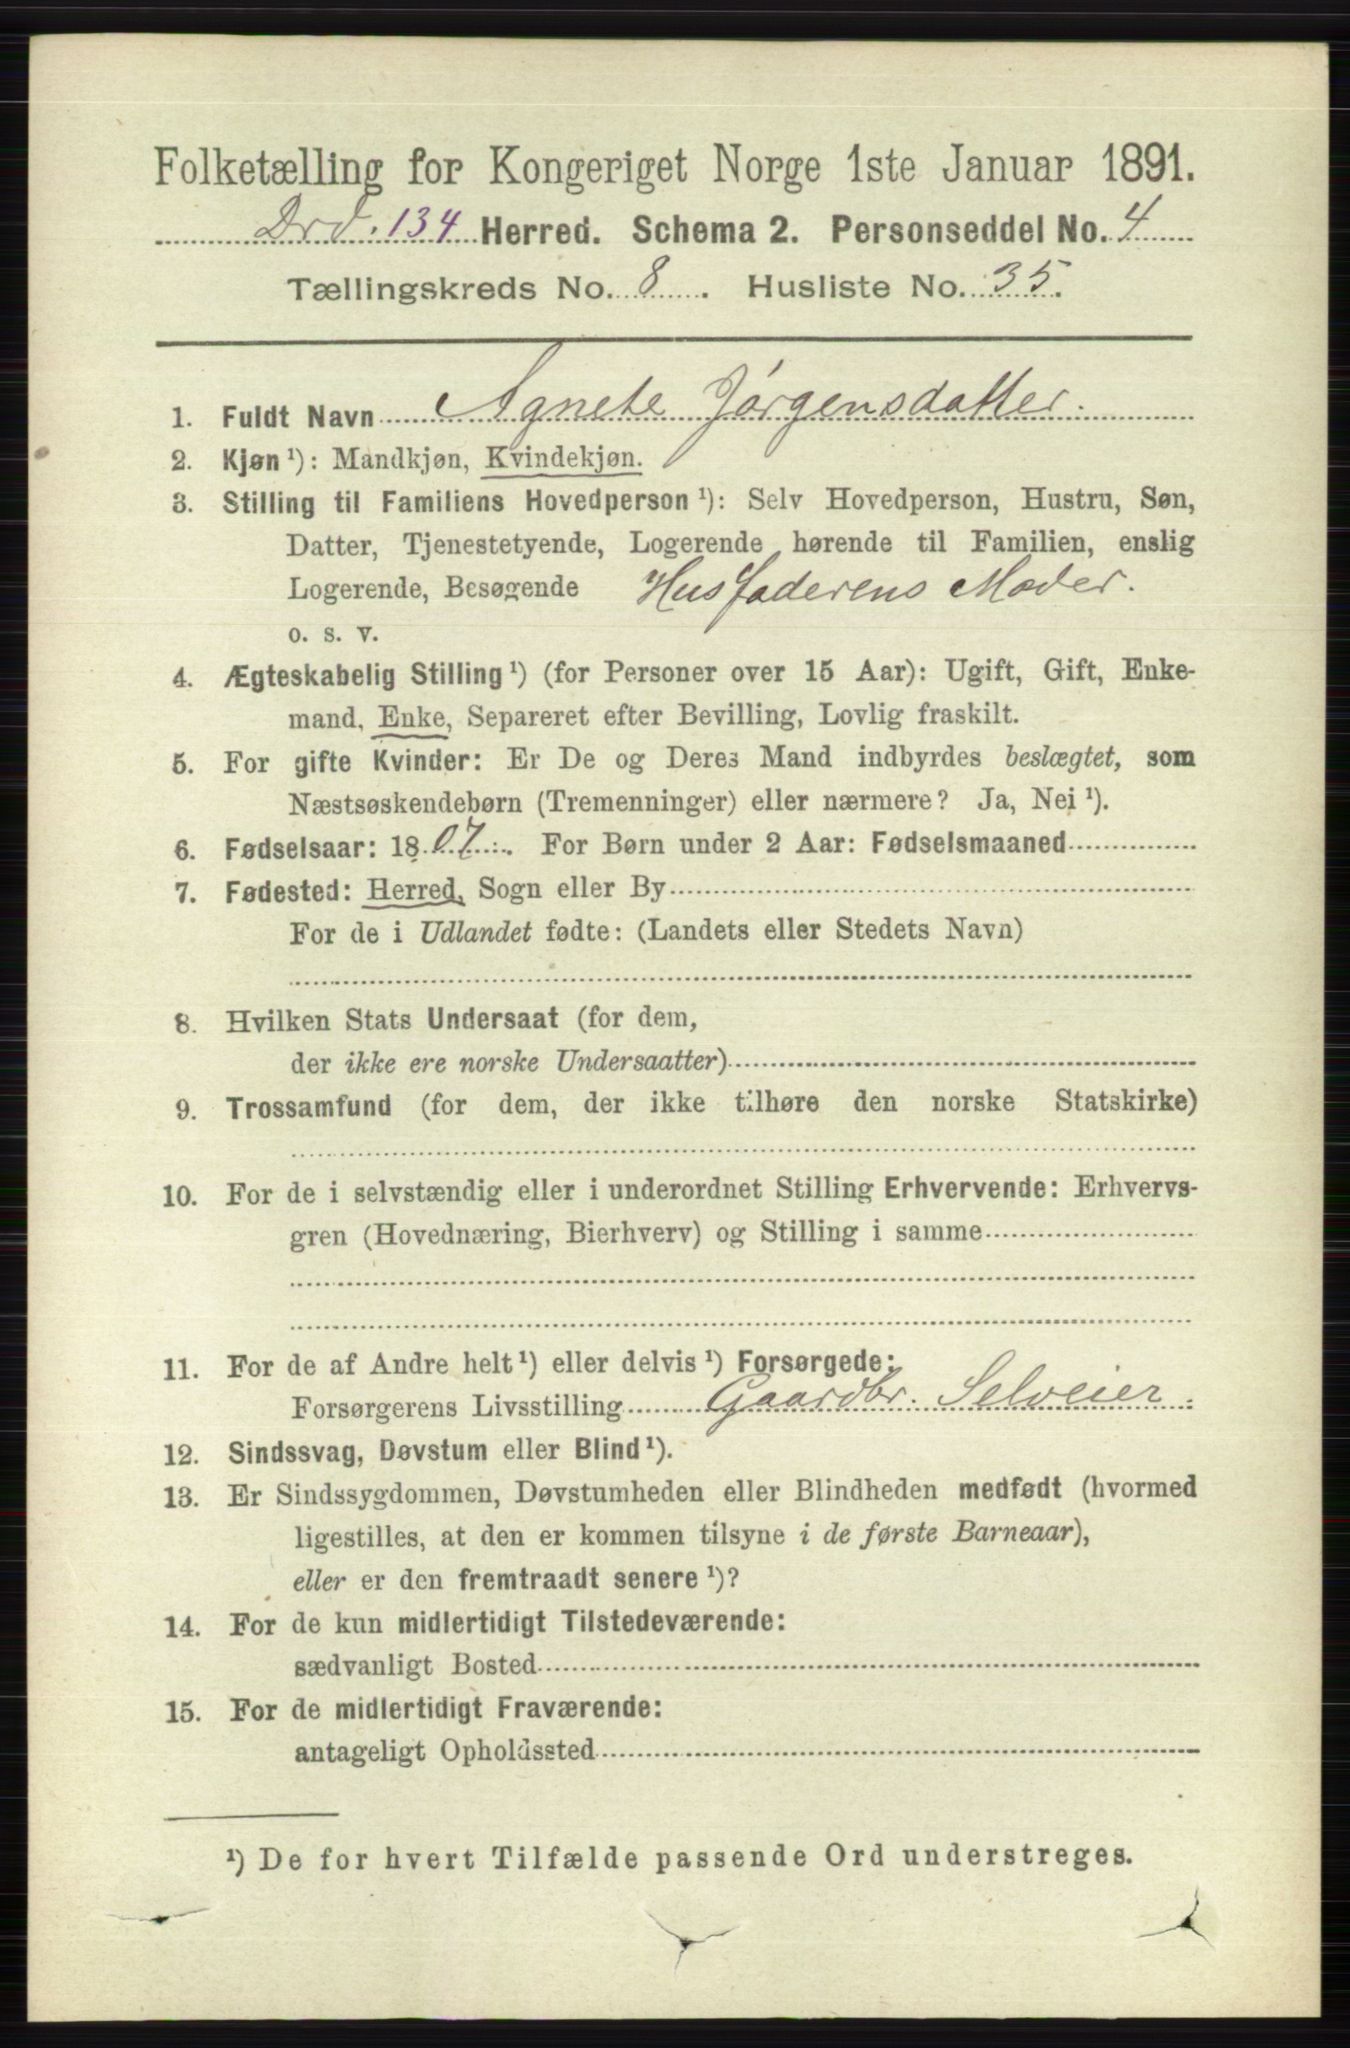 Folketælling for Kongeriget Norge 1ste Januar 1891.
Drd. 134 Herred. Schema 2. Personseddel No. 4
Tællingskreds No. 8. Husliste No. 35.
1. Fuldt Navn Agnete Jørgensdatter.
2. Kjøn ¹): Mandkjøn, Kvindekjøn.
3. Stilling til Familiens Hovedperson ¹): Selv Hovedperson, Hustru, Søn,
Datter, Tjenestetyende, Logerende hørende til Familien, enslig
Logerende, Besøgende Husfaderens Moder.
o. s. v.
4. Ægteskabelig Stilling ¹) (for Personer over 15 Aar): Ugift, Gift, Enke-
mand, Enke, Separeret efter Bevilling, Lovlig fraskilt.
5. For gifte Kvinder: Er De og Deres Mand indbyrdes beslægtet, som
Næstsøskendebørn (Tremenninger) eller nærmere? Ja, Nei ¹).
6. Fødselsaar: 1807. For Børn under 2 Aar: Fødselsmaaned
7. Fødested: Herred, Sogn eller By
For de i Udlandet fødte: (Landets eller Stedets Navn)
8. Hvilken Stats Undersaat (for dem,
der ikke ere norske Undersaatter)
9. Trossamfund (for dem, der ikke tilhøre den norske Statskirke)
10. For de i selvstændig eller i underordnet Stilling Erhvervende: Erhvervs-
gren (Hovednæring, Bierhverv) og Stilling i samme
11. For de af Andre helt ¹) eller delvis ¹) Forsørgede:
Forsørgerens Livsstilling Gaardbr. Selveier.
12. Sindssvag, Døvstum eller Blind ¹).
13. Er Sindssygdommen, Døvstumheden eller Blindheden medfødt (hvormed
ligestilles, at den er kommen tilsyne i de første Barneaar),
eller er den fremtraadt senere ¹)?
14. For de kun midlertidigt Tilstedeværende:
sædvanligt Bosted
15. For de midlertidigt Fraværende:
antageligt Opholdssted
¹) De for hvert Tilfælde passende Ord understreges.